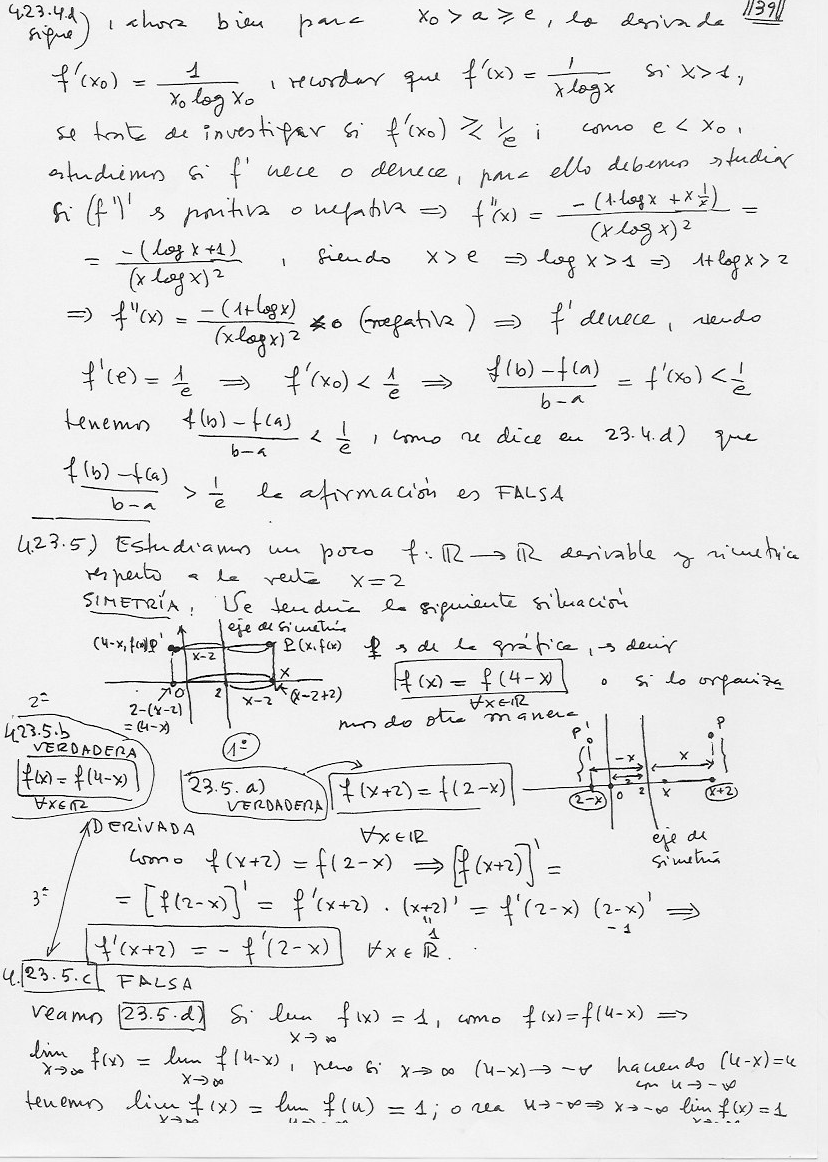 4.23.4.d sigue) , ahora bien para x₀ > a ≥ e, la derivada //39//
f'(x₀) = 1/(x₀ log x₀) , recordar que f'(x) = 1/(x log x) si x > 1,
se trata de investigar si f'(x₀) ≷ 1/e ; como e < x₀,
estudiemos si f' crece o decrece, para ello debemos estudiar
si (f')' es positiva o negativa ⇒ f''(x) = -(1·log x + x 1/x)/(x log x)² =
= -(log x + 1)/(x log x)² , siendo x > e ⇒ log x > 1 ⇒ 1 + log x > 2
⇒ f''(x) = -(1 + log x)/(x log x)² < 0 (negativa) ⇒ f' decrece, siendo
f'(e) = 1/e ⇒ f'(x₀) < 1/e ⇒ (f(b) - f(a))/(b - a) = f'(x₀) < 1/e
tenemos (f(b) - f(a))/(b - a) < 1/e , como se dice en 23.4.d) que
(f(b) - f(a))/(b - a) > 1/e la afirmación es FALSA
4.23.5) Estudiamos un poco f: ℝ → ℝ derivable y simétrica
respecto a la recta x = 2
SIMETRÍA. Se tendría la siguiente situación
eje de simetría
(4-x, f(x)) P' P(x, f(x)) P es de la gráfica, es decir
x-2
f(x) = f(4-x) o si lo organiza
∀x∈ℝ
0 2 x-2 x (x-2+2)
2-(x-2)
= (4-x)
mos de otra manera
2º
4.23.5.b
VERDADERA
f(x) = f(4-x)
∀x∈ℝ
1º
23.5.a)
VERDADERA
f(x+2) = f(2-x)
∀x∈ℝ
P' P
-x x
2
2-x 0 2 x x+2
eje de
simetría
DERIVADA
como f(x+2) = f(2-x) ⇒ [f(x+2)]' =
3º
= [f(2-x)]' = f'(x+2) · (x+2)' = f'(2-x) (2-x)' ⇒
" 1 -1
f'(x+2) = - f'(2-x) ∀x∈ℝ.
4.23.5.c FALSA
veamos 23.5.d) Si lim f(x) = 1, como f(x) = f(4-x) ⇒
x→∞
lim f(x) = lim f(4-x), pero si x→∞ (4-x)→ -∞ haciendo (4-x) = u
x→∞ x→∞ con u→ -∞
tenemos lim f(x) = lim f(u) = 1; o sea u→ -∞ ⇒ x→ -∞ lim f(x) = 1
x→∞ u→ -∞ x→ -∞